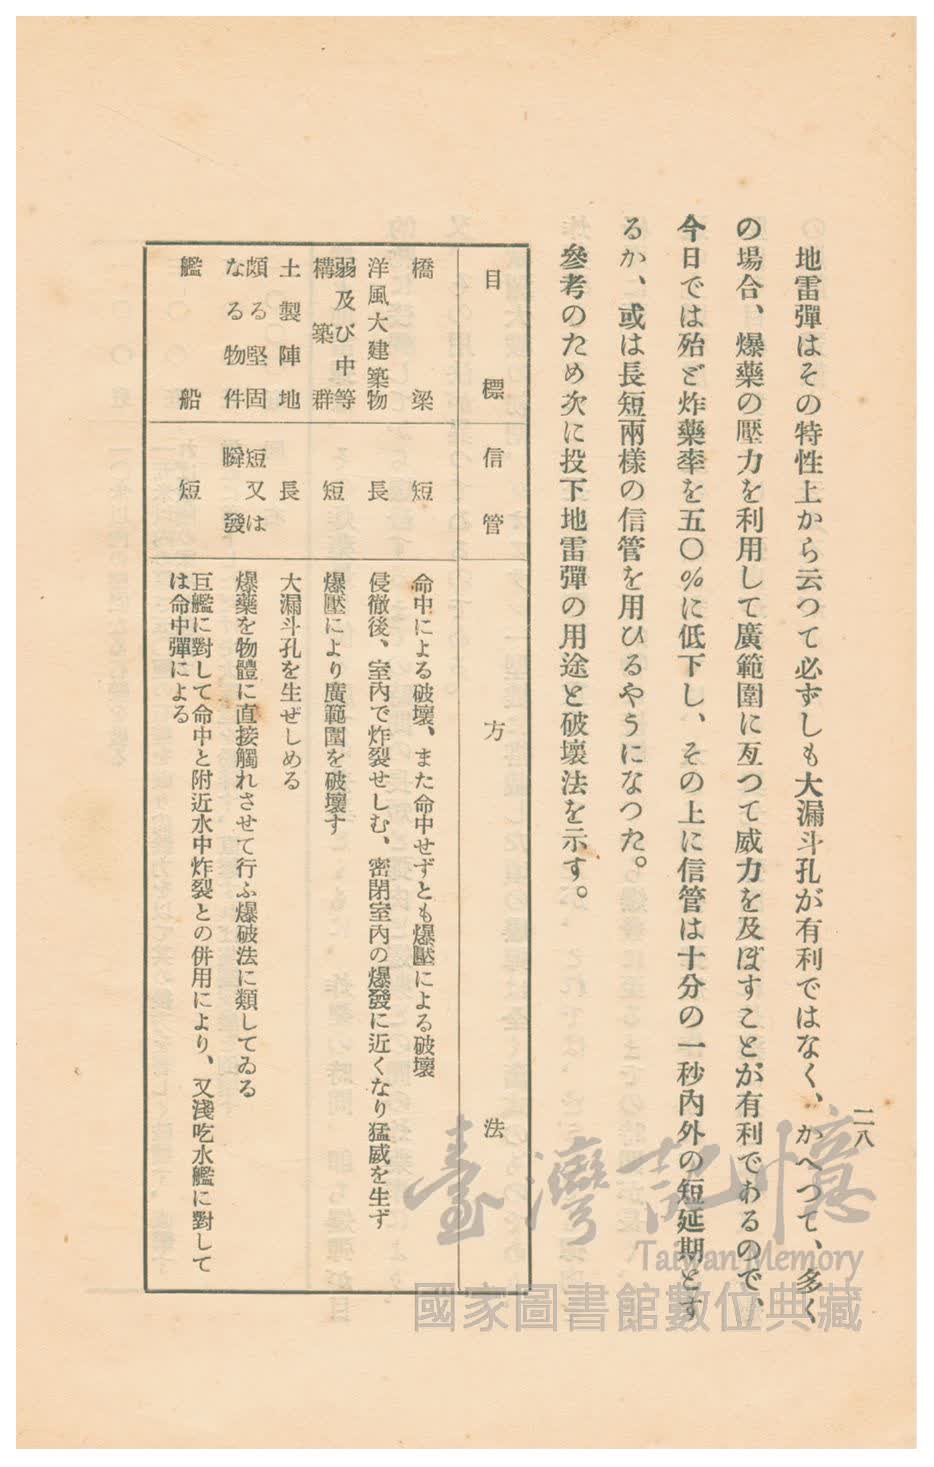 二八
地雷彈はその特性上から云つて必ずしも大漏斗孔が有利ではなく、かへつて、多く
の場合、爆藥の壓力を利用して廣範圍に亙つて威力を及ぼすことが有利であるので、
今日では殆ど炸藥率を五〇％に低下し、その上に信管は十分の一秒內外の短延期とす
るか、或は長短兩樣の信管を用ひるやうになつた。
參考のため次に投下地雷彈の用途と破壞法を示す。
目標 信管 方法
橋梁 短 命中による破壞、また命中せずとも爆壓による破壞
洋風大建築物 長 侵徹後、室內で炸裂せしむ、密閉室內の爆發に近くなり猛威を生ず
弱及び中等
構築群 短 爆壓により廣範圍を破壞す
土製陣地 長 大漏斗孔を生ぜしめる
頗る堅固
なる物件 短又は
瞬發 爆藥を物體に直接觸れさせて行ふ爆破法に類してゐる
艦船 短 巨艦に對して命中と附近水中炸裂との併用により、又淺吃水艦に對して
は命中彈による
臺灣記憶
Taiwan Memory
國家圖書館數位典藏